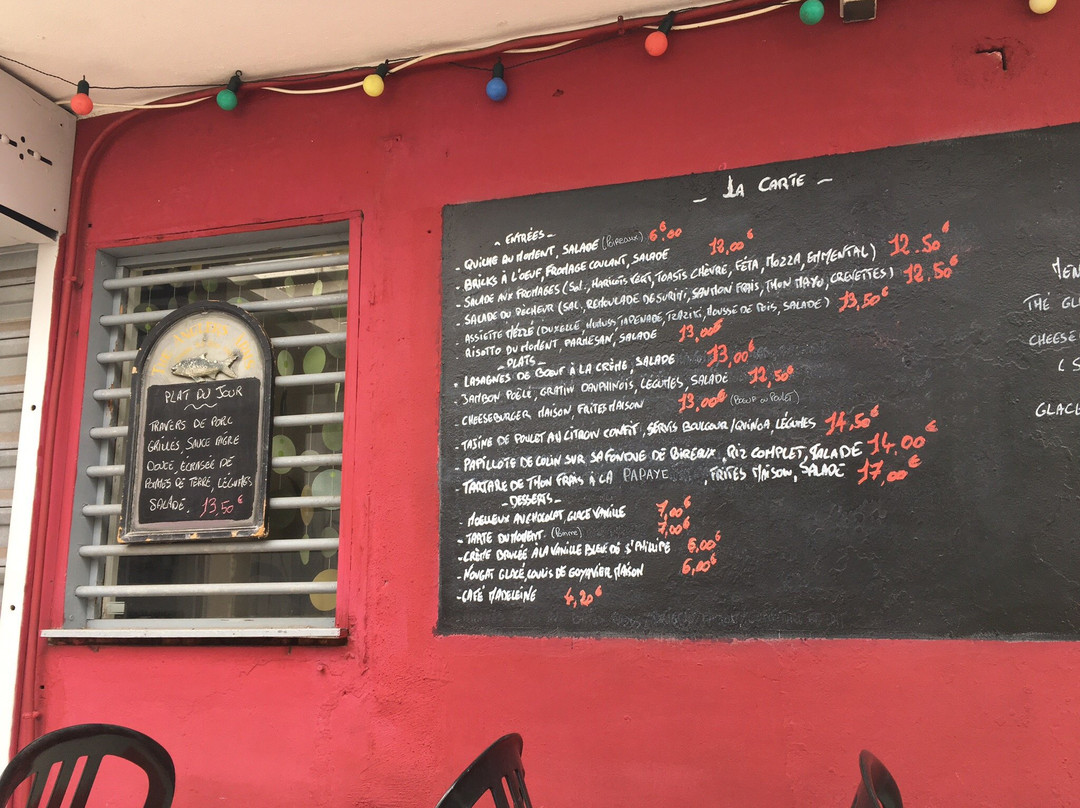 PLAT DU JOUR
TRAVERS DE PORC
GRILLÉS, SAUCE AIGRE
DOUCE, ÉCRASÉE DE
POMMES DE TERRE, LÉGUMES
SALADE. 13,50€
- LA CARTE -
- ENTRÉES -
- QUICHE DU MOMENT, SALADE (POIREAUX) 6,00
- BRICKS À L'OEUF, FROMAGE COULANT, SALADE 12,00€
- SALADE AUX FROMAGES (SAL, HARICOTS VERT, TOASTS CHÈVRE, FÉTA, MOZZA, EMMENTAL) 12.50€
- SALADE DU PÊCHEUR (SAL, REMOULADE DE SURIMI, SAUMON FRAIS, THON MAYO, CREVETTES) 12,50€
ASSIETTE MÉZZÉ (DUXELLE, HUMUS, TAPENADE, TZAZIKI, MOUSSE DE POIS, SALADE) 13,50€
RISOTTO DU MOMENT, PARMESAN, SALADE 13,00€
- PLATS -
- LASAGNES DE BOEUF À LA CRÈME, SALADE 13,00€
- JAMBON POÊLÉ, GRATIN DAUPHINOIS, LÉGUMES, SALADE 12,50€
- CHEESEBURGER MAISON, FRITES MAISON 13,00€ (BOEUF OU POULET)
- TAJINE DE POULET AU CITRON CONFIT, SERVIS BOULGOUR/QUINOA, LÉGUMES 14,50€
- PAPILLOTE DE COLIN SUR SA FONDUE DE POIREAUX, RIZ COMPLET, SALADE 14.00€
- TARTARE DE THON FRAIS À LA PAPAYE, FRITES MAISON, SALADE 17,00€
- DESSERTS -
- MOELLEUX AU CHOCOLAT, GLACE VANILLE 7,00€
- TARTE DU MOMENT (POMME) 7,00€
- CRÈME BRULÉE À LA VANILLE BLEUE DE ST PHILIPPE 6,00€
- NOUGAT GLACÉ, COULIS DE GOYAVIER MAISON 6,00€
- CAFÉ MADELEINE 4,20€
MEN
THÉ GL
CHEESE
(S
GLACE